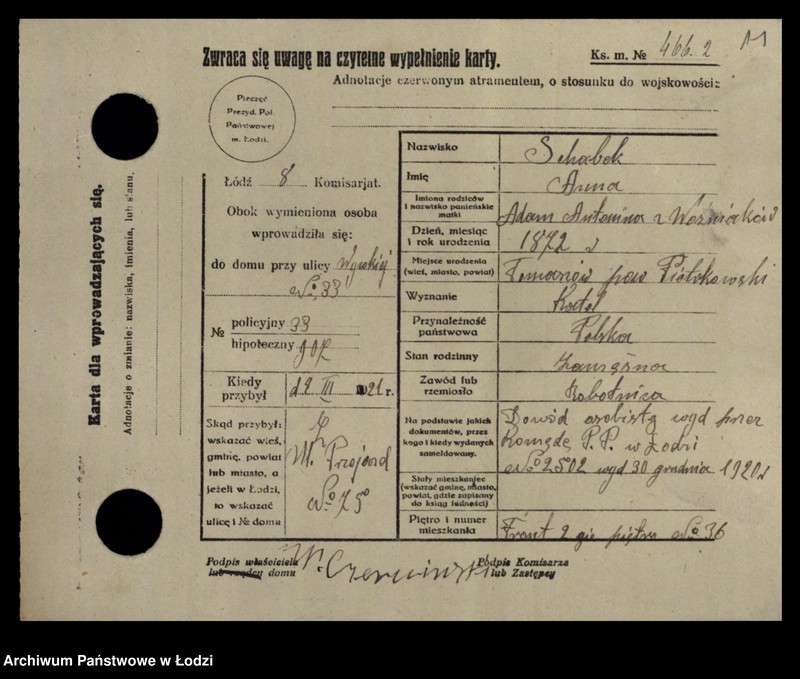 Zwraca się uwagę na czytelne wypełnienie karty.
Ks. m. № 466.2
Adnotacje czerwonym atramentem, o stosunku do wojskowości:
Pieczęć
Prezyd. Pol.
Państwowej
m. Łodzi.
Karta dla wprowadzających się.
Adnotacje o zmianie: nazwiska, imienia, lub stanu.
Łódź 8 Komisarjat.
Obok wymieniona osoba
wprowadziła się:
do domu przy ulicy Wysokiej
№ 33
№ policyjny 33
hipoteczny 907
Kiedy przybył d 2 III 1921 r.
Skąd przybył:
wskazać wieś,
gminę, powiat
lub miasto, a
jeżeli w Łodzi,
to wskazać
ulicę i № domu
Z
Ul. Przejazd
№ 75
Nazwisko Schabek
Imię Anna
Imiona rodziców i nazwisko panieńskie matki Adam Antonina z Woźniaków
Dzień, miesiąc i rok urodzenia 1872 r
Miejsce urodzenia (wieś, miasto, powiat) pow Piotrkowski
Wyznanie Katol
Przynależność państwowa Polska
Stan rodzinny zamężna
Zawód lub rzemiosło Robotnica
Na podstawie jakich dokumentów, przez kogo i kiedy wydanych sameldowany.
Dowód osobisty wyd przez
Komędę P. P. w Łodzi
№ 2502 wyd 30 grudnia 1920 r
Stały mieszkaniec (wskazać gminę, miasto, powiat, gdzie zapisany do ksiąg ludności)
Piętro i numer mieszkania Front 2 gie piętro № 36
Podpis właściciela
lub rządcy domu
W. Czerwiński
Podpis Komisarza
lub Zastępcy
Archiwum Państwowe w Łodzi